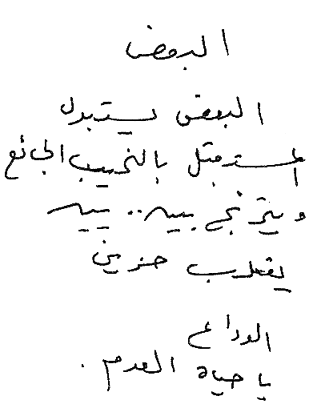 البعض
البعض يستبدل
المستقبل بالنحيب الجائع
ويترنح بيد.. بيد
بقلب حزين
الوداع
يا حياة العدم.